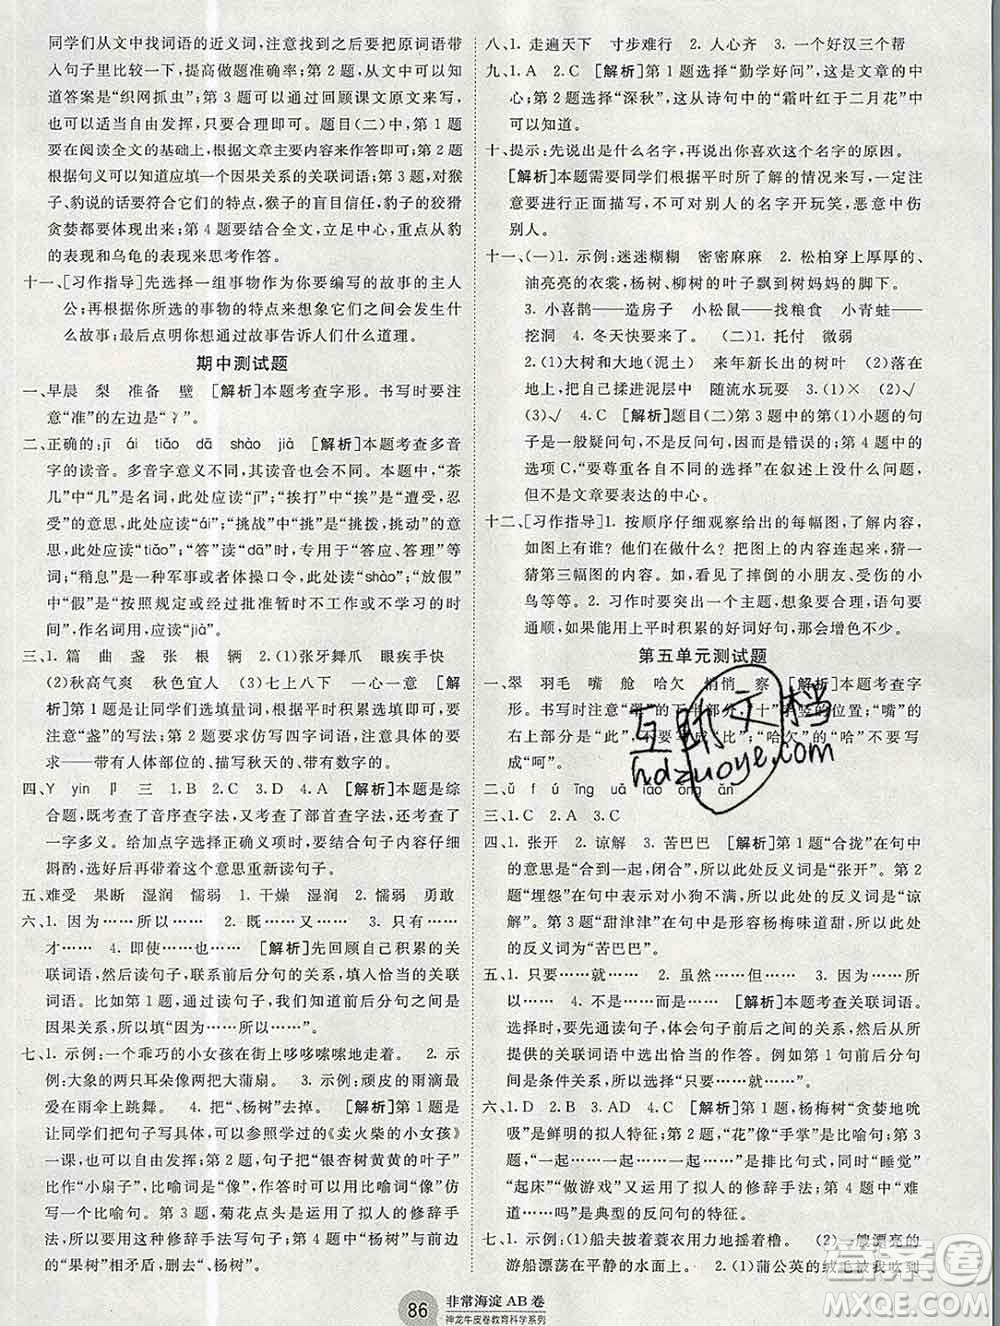 同学们从文中找词语的近义词，注意找到以后要把原词语带
入句子里比较一下，提高做题准确率；第2题，从文中可以知
道答案是“织网抓虫”；第3题可以通过回顾课文原文来写，也
可以适当自由发挥，只要合理即可。题目(二)中，第1题
要在阅读全文的基础上，根据文章主要内容来作答即可；第2题
根据句义可以知道应填一个因果关系的关联词语；第3题，从猴
子、豹说的话要符合它们的特点，猴子的盲目信任，豹子的狡猾
贪婪都要体现出来；第4题要结合全文，立足中心，重点从豹
的表现和乌龟的表现来思考作答。
十一、[习作指导]先选择一组事物作为你要编写的故事的主人
公；再根据你所选的事物的特点来想象它们之间会发生什
么故事；最后点明你想通过这个故事告诉人们什么道理。
期中测试题
一、早晨 梨 准备 壁 [解析]本题考查字形。书写时要注
意“准”的左边是“冫”。
二、正确的：jī ái tiǎo dā shào jià [解析]本题考查多音
字的读音。多音字意义不同，读音也不同。本题中，“茶
几”中“几”是名词，此处应读“jī”；“挨打”中“挨”是“遭受，忍
受”的意思，此处应读“ái”；“挑战”中“挑”是“挑拨，挑动”的意
思，此处应读“tiǎo”；“答”读“dā”时，用于“答应、答理”等词
语；“稍息”是一种军事或者体操口令，此处应读“shào”；“放假”
中“假”是“按照规定或经过批准暂时不工作或不学习的时
间”，作名词用，应读“jià”。
三、1. 篇 曲 盏 张 根 辆 2.(1)张牙舞爪 眼疾手快
(2)秋高气爽 秋色宜人 (3)七上八下 一心一意 [解
析]第1题是让同学们选填量词，可根据平时积累选填即可，注
意“盏”的写法；第2题要求仿写四字词语，注意括号前的要求
——带有人体部位的、描写秋天的、带有数字的。
四、Y yìn 卩 三 1.B 2.C 3.D 4.A [解析]本题是综
合题，既考查了音序查字法，又考查了部首查字法，还考查了
一字多义。给加点字选择正确解释，要认真读句子仔细
斟酌，也可以带着这个意思重新读句子。
五、难受 果断 湿润 懦弱 1.干燥 湿润 2.懦弱 勇敢
六、1.因为……所以…… 2.既……又…… 3.只有……
才…… 4.即使……也…… [解析]先回顾自己积累的关
联词语，然后读句子，理解前后分句的关系，填入恰当的关联
词语。比如第1题，读句子，知道前后分句之间的关系是
因果关系，所以填“因为……所以……”。
七、1.示例：一个乖巧的小女孩在街上哆哆嗦嗦地走着。 2.示
例：大象的两只耳朵像两大蒲扇。 3.示例：顽皮的雨滴爱
在雨伞上跳舞。 4.把“、杨树”去掉。 [解析]第1题是
让同学们把句子写具体，可以结合学过的《卖火柴的小女孩》
一课，把句子写具体；第2题，例句是把“银杏树黄黄的叶子”
比作“小扇子”，比喻词是“像”，作答时可以用比喻词“像”来
写一个比喻句；第3题，菊花点头的描写运用了拟人的修辞手
法，所以要用这种修辞手法写句子；第4题“杨树”与前边
的“果树”相矛盾，删去“、杨树”。
八、1.走遍天下 寸步难行 2.人心齐 3.一个好汉三个帮
九、1.A 2.C [解析]第1题选“勤学好问”，这是文章的中
心；第2题选“深秋”，这从诗句中的“霜叶红于二月花”中
可以知道。
十、提示：先说出是什么名字，再说出你喜欢这个名字的原因。
[解析]本题需要同学们根据平时了解的情况来写，注意
要进行正面描写，不可对别人的名字开玩笑，恶意中伤
别人。
十一、(一)1.示例：迷迷糊糊 密密麻麻 2.松柏穿上厚厚的、
油亮亮的衣裳，杨树、柳树的叶子飘到树妈妈的脚下。
3.小喜鹊——造房子 小松鼠——找粮食 小青蛙——
挖洞 4.冬天快要来了。(二)1.托付 微弱
2.(1)大树和大地(泥土) 来年新长出的树叶 (2)落在
地上，把自己揉进泥层中 随流水玩耍 3.(1)× (2)√
(3)√ 4.C [解析]题目(二)第3题中的第(1)小题的句
子是一般疑问句，不是反问句，因而是错误的；第4题中的
选项C，“要尊重各自不同的选择”在叙述上没什么问题，
但不是文章要表达的中心。
十二、[习作指导]1.按顺序仔细观察给出的每幅图，看看
图上有谁？他们在干什么？把图上的内容连起来，猜一
猜第三幅图的内容。比如，看了摔倒的小朋友、受伤的小
鸟等等。2.习作时要突出一个主题，想象要合理，语句要
通顺，如果用上平时积累的好词好句，习作会更加精彩。
第五单元测试题
一、翠 羽毛 嘴 舱 哈欠 悄悄 察 [解析]本题考查字
形。书写时注意“翠”的下部分，“十”的竖的位置；“嘴”的
右上部分是“此”，不要写成“比”；“哈欠”的“哈”不要写
成“呵”。
二、ǔ fú īng uà iáo òng ān
三、1.C 2.A 3.C
四、1.张开 2.谅解 3.苦巴巴 [解析]第1题“合拢”在句中
的意思是“合到一起，闭合”，所以此处反义词是“张开”。第
2题“埋怨”在句中表示对小狗不满，所以此处反义词是“谅
解”。第3题“甜津津”在句中是形容杨梅味道甜，所以此处
的反义词为“苦巴巴”。
五、1.只要……就…… 2.虽然……但…… 3.因为……所
以…… 4.不是……而是…… [解析]本题考查关联词语。
选择时，要充分领会前后句子之间的关系，然后从
提供的关联词语中选出恰当的作答。例如第1句前后分句
之间是条件关系，所以选择“只要……就……”。
六、1.D 2.B 3.C 4.A [解析]第1题，杨梅树“贪婪地吮
吸”是鲜明的拟人特征；第2题，“花”像“手掌”是比喻句；第
3题，“一起……一起……一起……”是排比句式，同时“睡觉”
“起床”“做游戏”也运用了拟人的修辞手法；第4题中“难
道……吗”是典型的反问句的特征。
七、1.示例：(1)船夫披着蓑衣用力地摇着橹。 (2)一艘漂亮的
游船漂荡在平静的水面上。 2.(1)蒲公英的绒毛被我吹到
86
非常海淀AB卷
神龙牛皮卷教育科学系列
互助文档
hdzuoye.com
答案圈
MXQE.COM